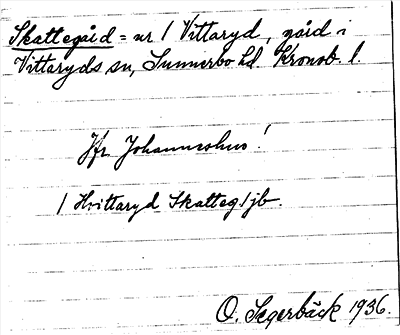 Skattegård = nr 1 Vittaryd, gård i
Vittaryds sn, Sunnerbo hd. Kronob. l.
Jfr Johanneshus!
1 Hvittaryd Skatteg. 1 jb.
O. Segerbäck 1936.